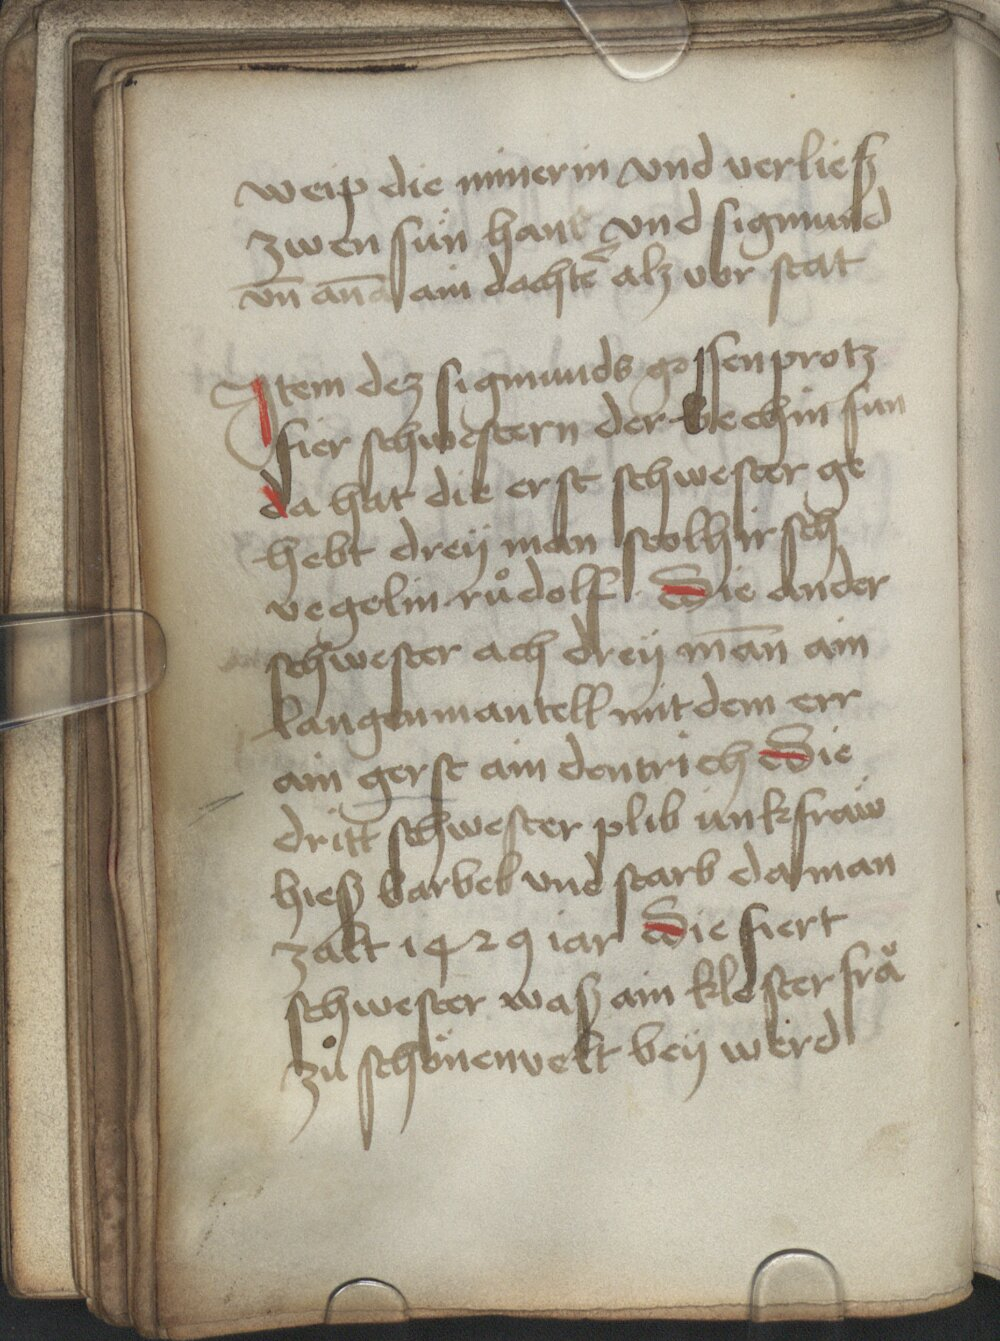 weip die minerin vnd verließ
zwen sün hans vnd sigmund
vn̄ an̄a ain dochter alz vor stat
Item dez sigmunds gossenprotz
fier schwestern der bechin sun
da hat die erst schwester ge
hebt dreÿ man stolhirsch
vegelin růdolf Die ander
schwester ach dreÿ man̄ ain
langenmantell mit dem err
ain gerst ain dentrich Die
dritt schwester plib iunkfraw
hieß barbel vnd starb da man
zalt 1429 iar Die fiert
schwester waß ain kloster frå
zů schönenvelt beÿ werd